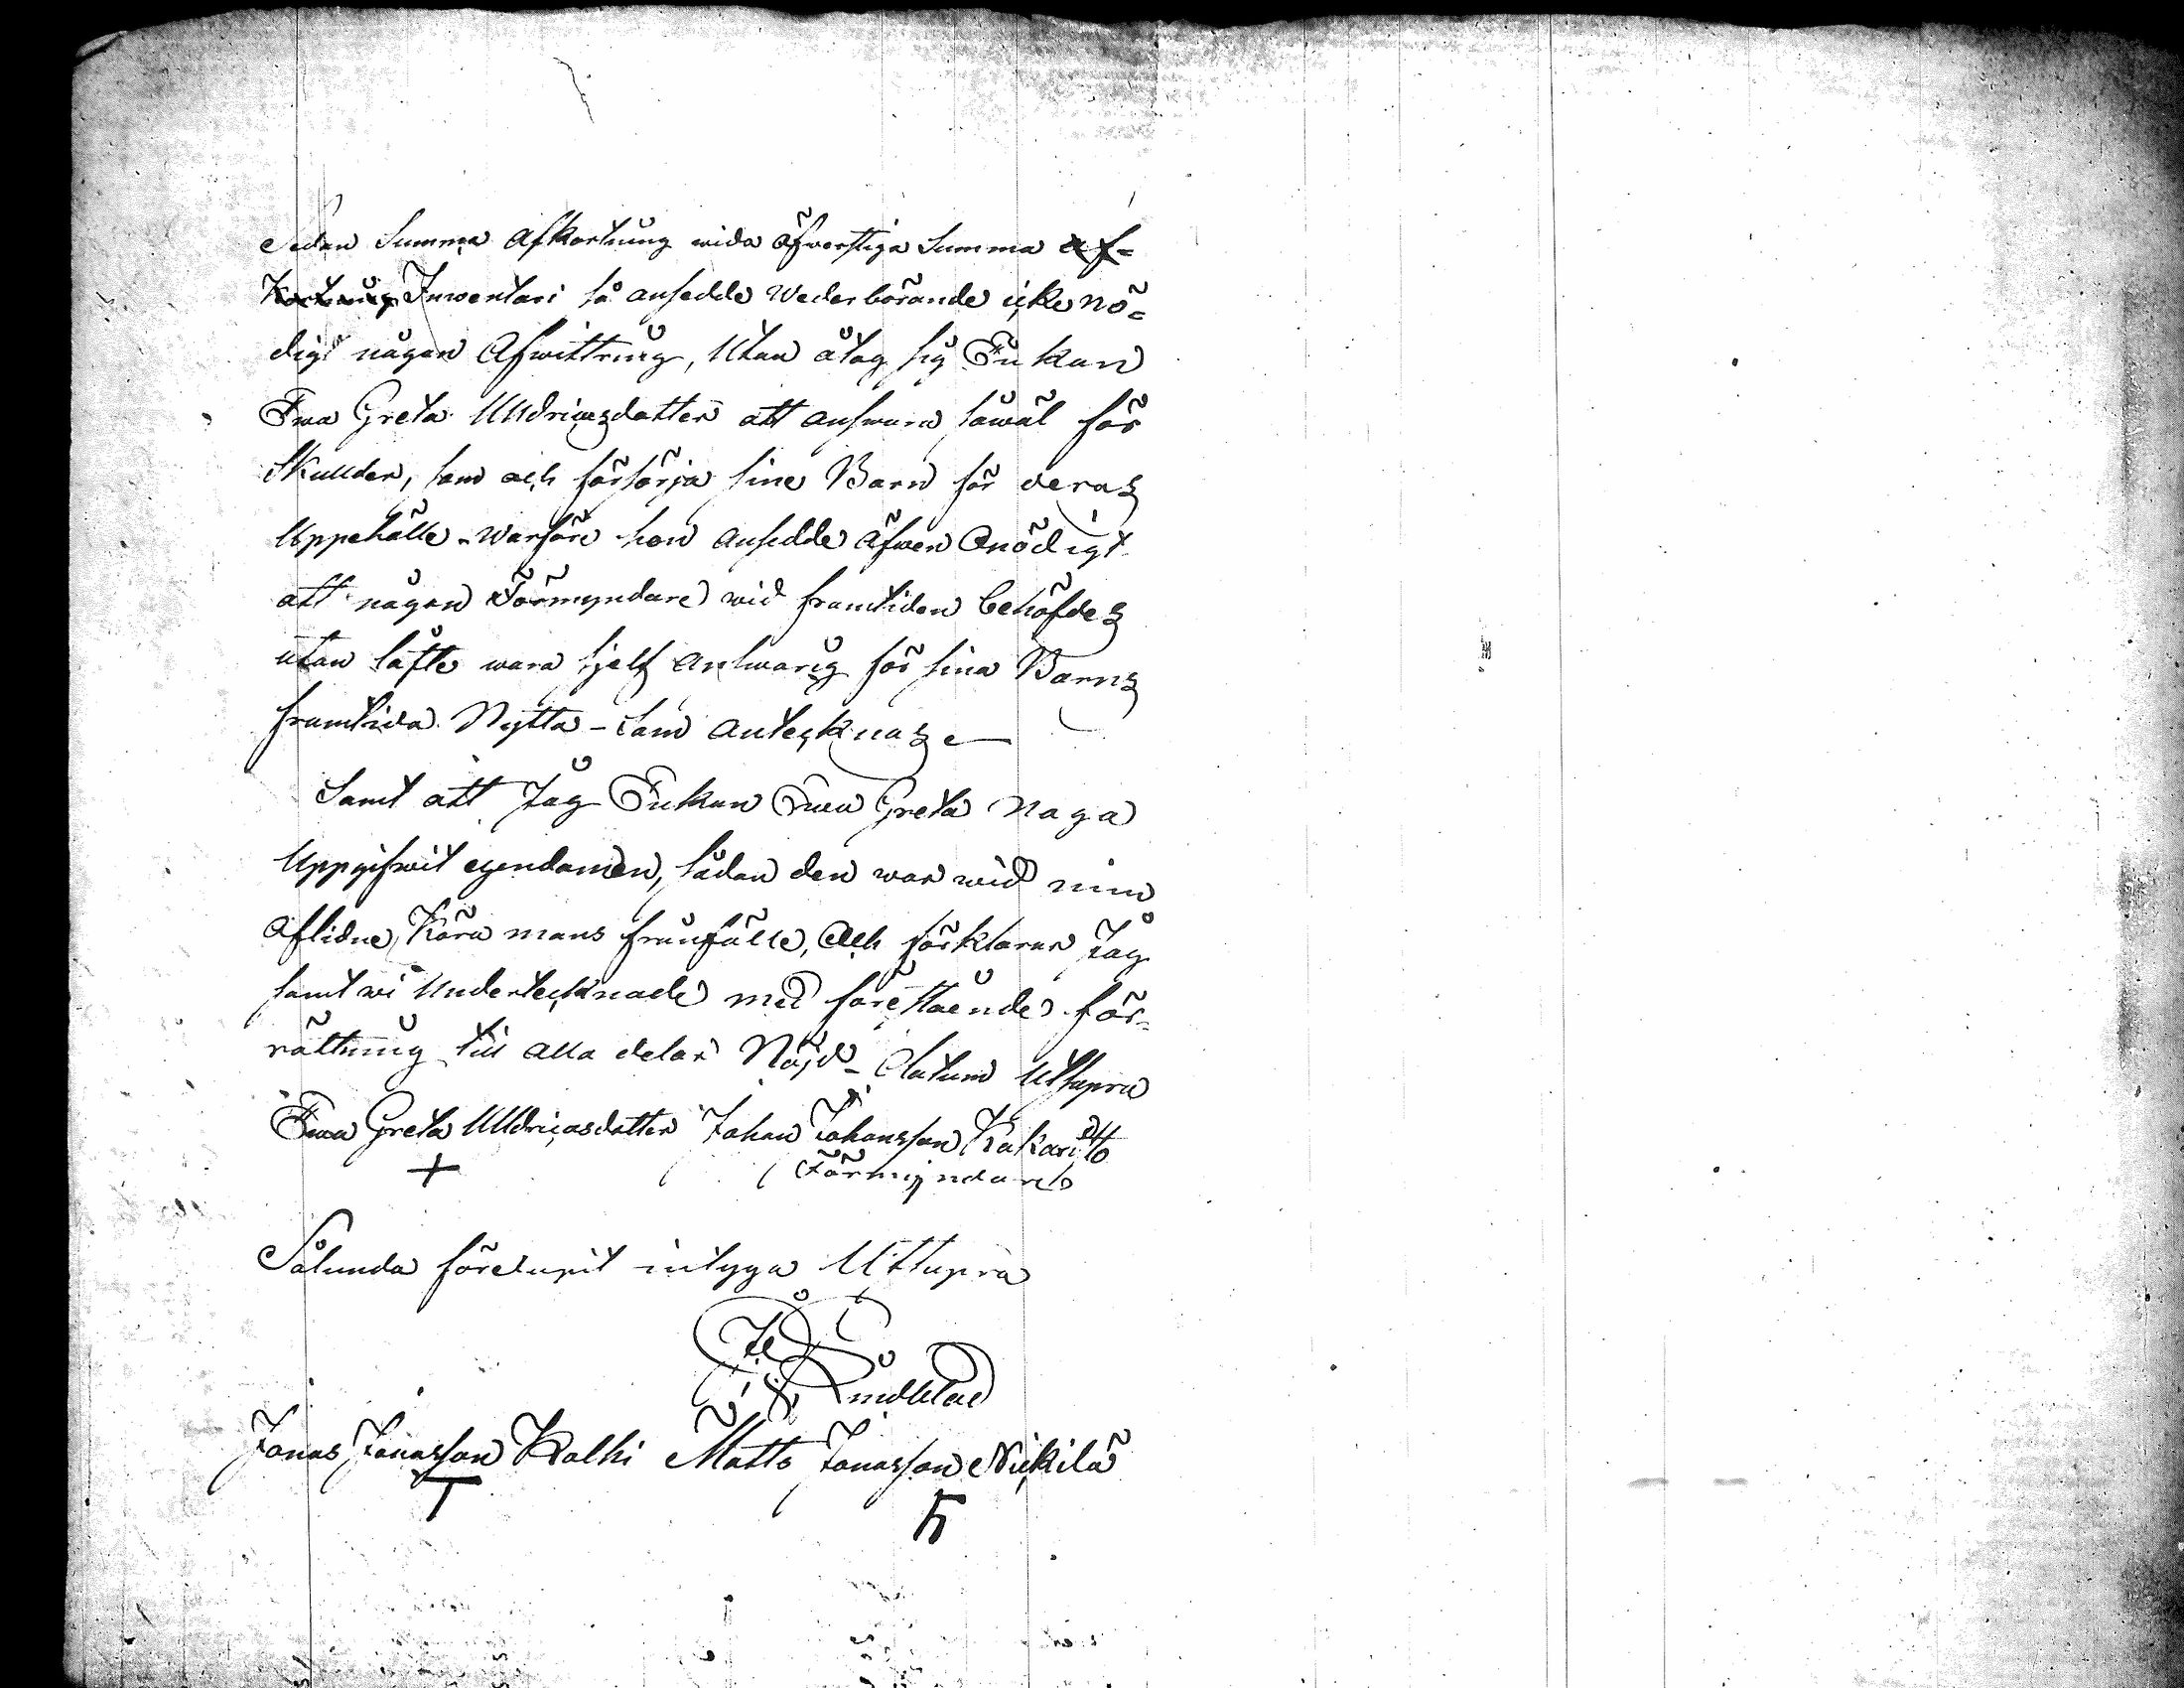 Sedan Summa Afkortnug wida öfverstiga Summa af-
Kortnug Inwentari så ansedde Wederbörande icke nö=
digt någon Afwittring, Utan åtog sig Enkan
Ewa Greta Ulldricasdotter att answara såwäl för
Skullder, som och försörja sine Barn för deras
Uppehälle. warföre hon ansedde äfwen Onödigt
att någon Förmyndare wid framtiden behöfdes
utan låfte wara sjelf answarig för sina Barns
framtida Nytta – som antecknas –
Samt att Jag Enkan Ewa Greta noga
Uppgifwit egendomen, sådan den war wid min
Aflidne Kära mans frånfälle, Och förklarar Jag
samt wi Undertecknade med förestående för=
rättning till alla delar Nöjd – Datum Utsupra
Ewa Greta Ulldricasdotter Johan Johansson Kakari
+ Förmyndare
Sålunda förelupit intyga Utsupra
Lindblad
Jonas Jonasson Kalhi Matts Jonasson Nickilä